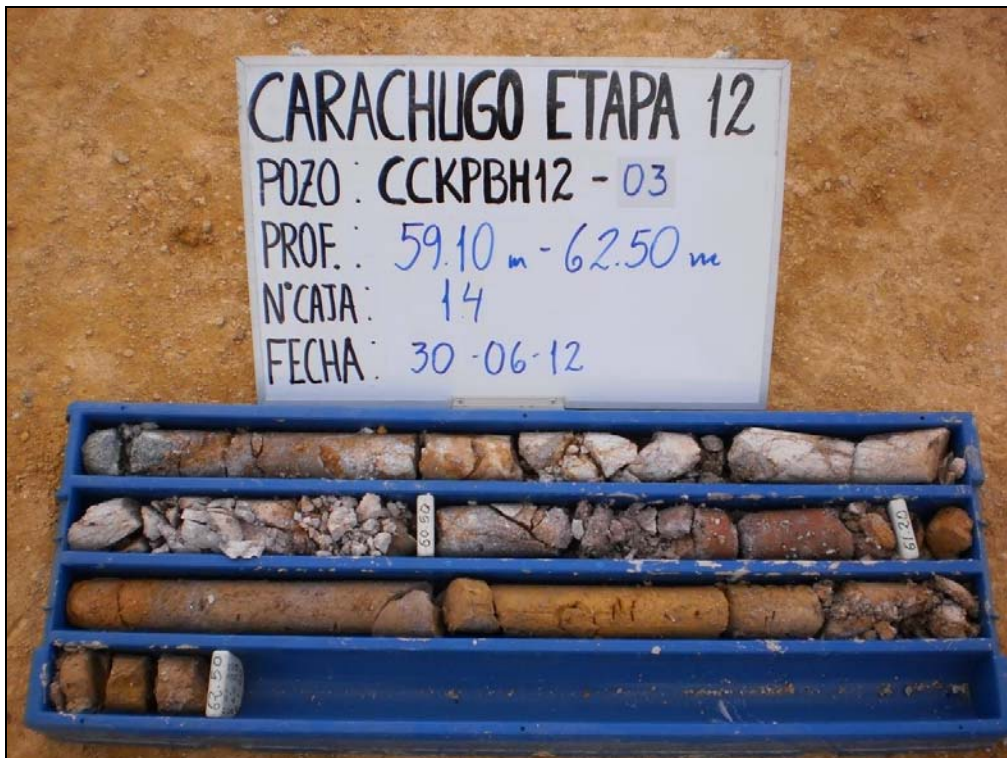 CARACHUGO ETAPA 12
POZO : CCKPBH12 - 03
PROF. : 59.10 m - 62.50 m
N° CAJA : 14
FECHA : 30 - 06 - 12
60.50
61.20
62.50